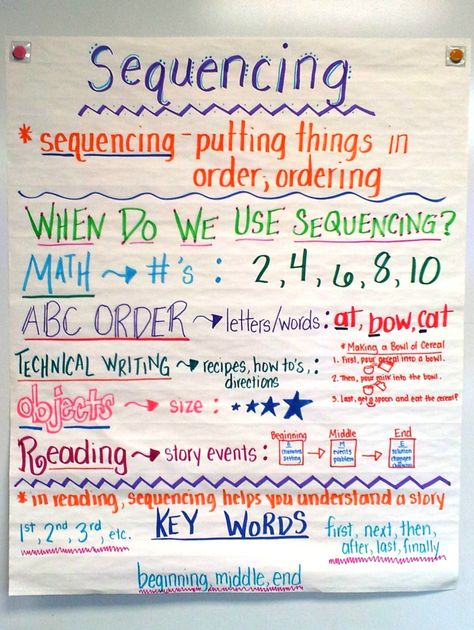 Sequencing
* sequencing - putting things in
order; ordering
WHEN DO WE USE SEQUENCING?
MATH → #'s : 2, 4, 6, 8, 10
ABC ORDER → letters/words: at, bow, cat
TECHNICAL WRITING → recipes, how to's, directions :
* Making a Bowl of Cereal
1. First, pour cereal into a bowl.
2. Then, pour milk into the bowl.
3. Last, get a spoon and eat the cereal!
objects → size :
Reading → story events :
Beginning → Middle → End
B characters setting
M events problem
E solution changes in characters
* in reading, sequencing helps you understand a story
KEY WORDS
1st, 2nd, 3rd, etc.
first, next, then,
after, last, finally
beginning, middle, end